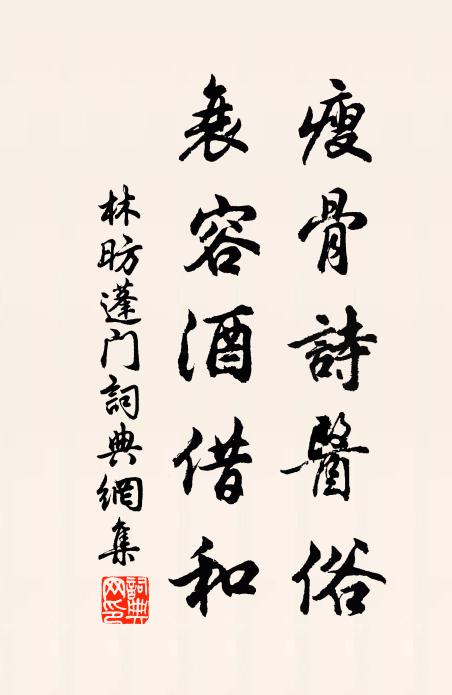 瘦骨詩醫俗
衰容酒借和
林昉蓬门詞典網集
詞典网印